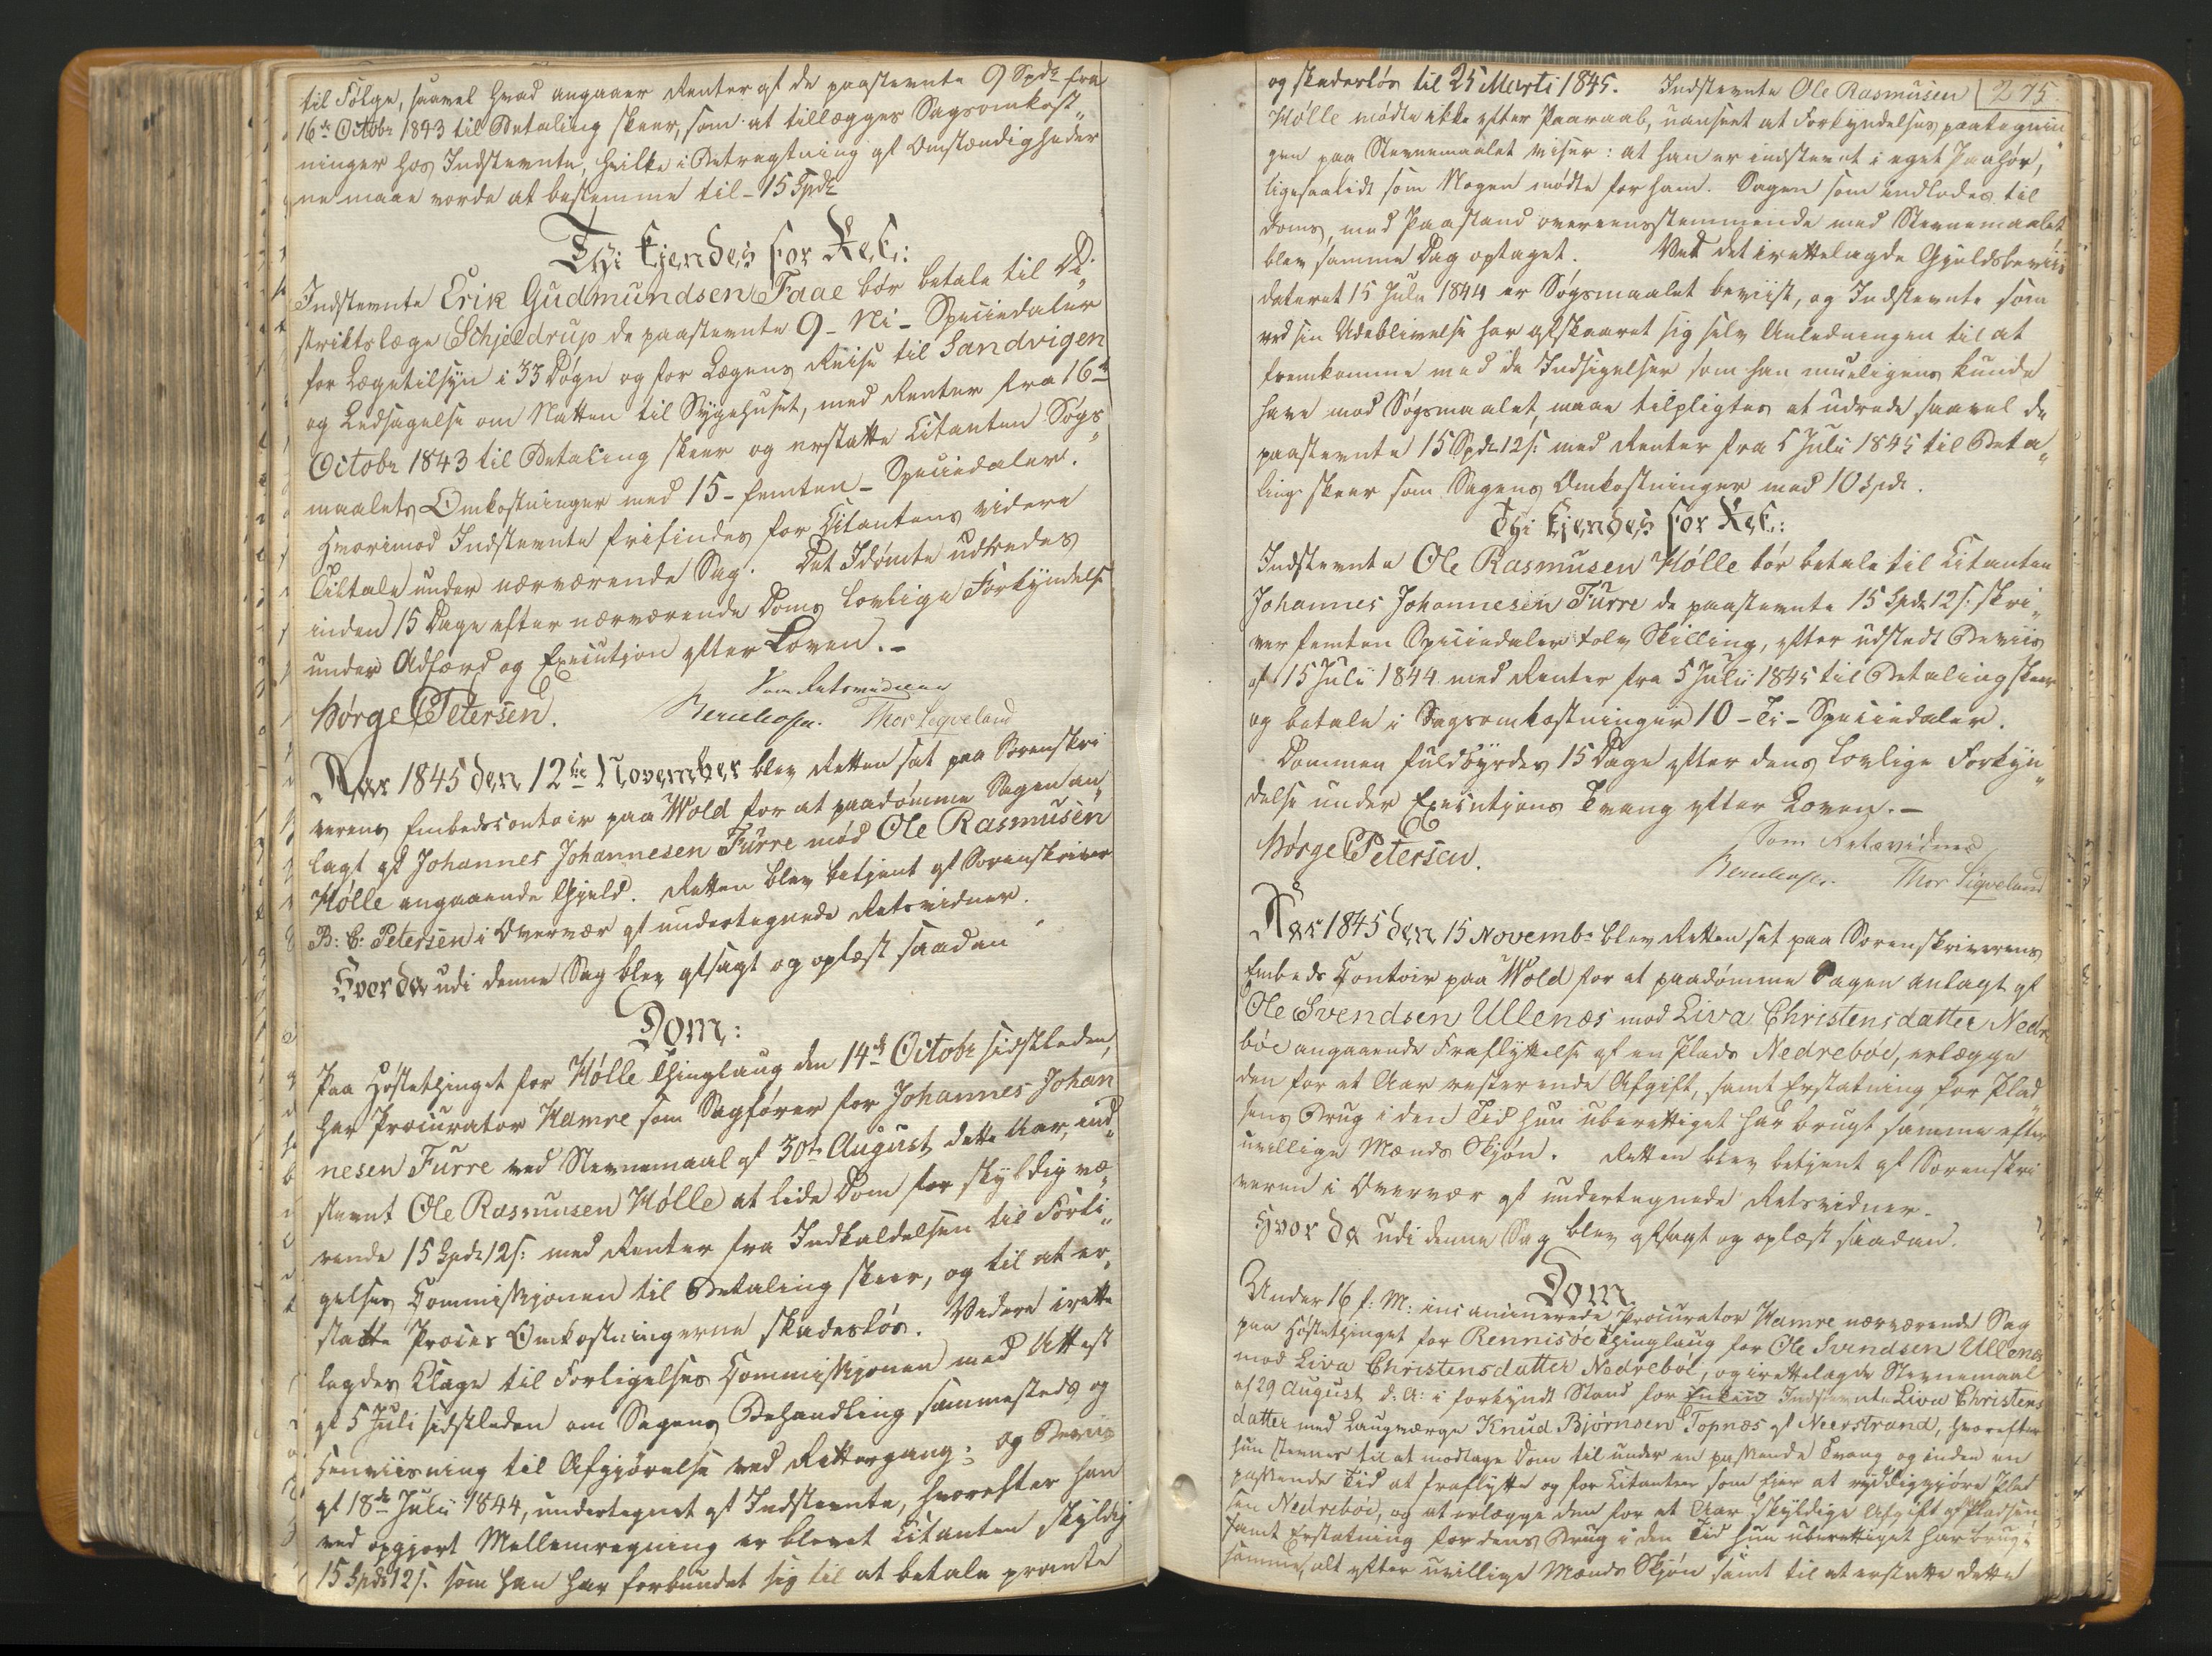 til Følge, saavel hvad angaaer Renter af de paastevnte 9 Spd. fra
16de Octobr 1843 til Betaling skeer, som at tillægges Sagsomkost„
ninger hos Indstevnte, hvilke i Betragtning af Omstændigheder
ne maae vorde at bestemme til - 15 Spd.
Thi kjendes for Ret:
Indstevnte Erik Gudmundsen Faae bør betale til Di„
striktslæge Schjeldrup de paastevnte 9 - Ni - Speciedaler
for Lægetilsyn i 33 Døgn og for Lægens Reise til Sandvigen
og Ledsagelse om Natten til Sygehuset, med Renter fra 16de
Octobr 1843 til Betaling skeer og erstatte Citanten Søgs„
maalets Omkostninger med 15 - femten - Speciedaler.
Hvorimod Indstevnte frifindes for Citantens videre
Tiltale under nærværende Sag. Det Idømte udredes
inden 15 Dage efter nærværende Doms lovlige Forkyndelse
under Adfærd og Execution efter Loven. -
Som Retsvidner
Børge C Petersen. Thor Sigveland
Aar 1845 den 12te November blev Retten sat paa Sorenskri
verens Embedscontoir paa Wold for at paadømme Sagen an„
lagt af Johannes Johannesen Furre mod Ole Rasmusen
Hølle angaaende Gjeld. Retten blev betjent af Sorenskriver
B: C: Petersen i Overvær af undertegnede Retsvidner.
Hvor da udi denne Sag blev afsagt og oplæst saadan
Dom:
Paa Høstethinget for Hølle Thinglaug den 14de Octobr sidstleden,
har Procurator Hamre som Sagfører for Johannes Johan
nesen Furre ved Stevnemaal af 30te August dette Aar, ind„
stevnt Ole Rasmusen Hølle at lide Dom for skyldig væ„
rende 15 Spd. 12 s: med Renter fra Indkaldelsen til Forli„
gelses Commissionen til Betaling skeer, og til at er„
statte Proces Omkostningerne skadesløs. Videre irette
lagdes Klage til Forligelses Commissionen med Attest
af 5 Juli sidstleden om Sagens Behandling sammesteds og
Henviisning til Afgjørelse ved Rettergang; og Beviis
af 18de Julii 1844, undertegnet af Indstevnte, hvorefter han
ved opgjort Mellemregning er blevet Citanten skyldig
15 Spd. 12 s. som han har forbundet sig til at betale promte
og skadesløs til 25 Martii 1845. Indstevnte Ole Rasmusen 275.
Hølle mødte ikke efter Paaraab, uanseet at Forkyndelses paategnin„
gen paa Stevnemaalet viser: at han er indstevnt i eget Paahør,
ligesaalidt som Nogen mødte for ham. Sagen som indlodes til
Doms, med Paastand overeensstemmende med Stevnemaalet
blev samme Dag optaget. Ved det irettelagde Gjeldsbeviis
dateret 15 Julii 1844 er Søgsmaalet beviist, og Indstevnte som
ved sin Udeblivelse har afskaaret sig selv Anledningen til at
fremkomme med de Indsigelser som han mueligens kunde
have mod Søgsmaalet, maae tilpligtes at udrede saavel de
paastevnte 15 Spd. 12 s. med Renter fra 5 Julii 1845 til Beta„
ling skeer som Sagens Omkostninger med 10 Spd.
Thi kjendes for Ret:
Indstevnte Ole Rasmusen Hølle bør betale til Citanten
Johannes Johannesen Furre de paastevnte 15 Spd. 12 s. skri„
ver femten Speciedaler tolv Skilling, efter udstedt Beviis
af 15 Julii 1844 med Renter fra 5 Julii 1845 til Betaling skeer
og betale i Sagsomkostninger 10 - Ti - Speciedaler.
Dommen fuldbyrdes 15 Dage efter dens lovlige Forkyn„
delse under Executions Tvang efter Loven. -
Som Retsvidner
Børge C Petersen. Thor Sigveland
Aar 1845 den 15 Novembr blev Retten sat paa Sorenskriverens
Embeds Contoir paa Wold for at paadømme Sagen anlagt af
Ole Svendsen Ullenæs mod Liva Christensdatter Nedre
bøe angaaende Fraflyttelse af en Plads Nedrebøe, erlægge
den for et Aar resterende Afgift, samt Erstatning for Plad„
sens Brug i den Tid hun uberettiget har brugt samme efter
uvillige Mænds Skjøn. Retten blev betjent af Sorenskri
veren i Overvær af undertegnede Retsvidner.
Hvor da udi denne Sag blev afsagt og oplæst saadan.
Dom
Under 16 f: M: incaminerede Procurator Hamre nærværende Sag
paa Høstethinget for Rennisøe Thinglaug for Ole Svendsen Ullenæs
mod Liva Christensdatter Nedrebøe, og irettelagde Stevnemaal
af 29 August d: A: i forkyndt Stand for Enken Indstevnte Liva Christens
datter med Laugværge Knud Bjørnsen Topnæs af Neerstrand, hvorefter
hun stevnes til at modtage Dom til under en passende Tvang og inden en
passende Tid at fraflytte og for Citanten som Eier at ryddiggjøre Plad
sen Nedrebøe, og at erlægge den for et Aar skyldige Afgift af Pladsen
samt Erstatning for dens Brug i den Tid hun uberettiget har brugt
samme, alt efter uvillige Mænds Skjøn samt til at erstatte dette